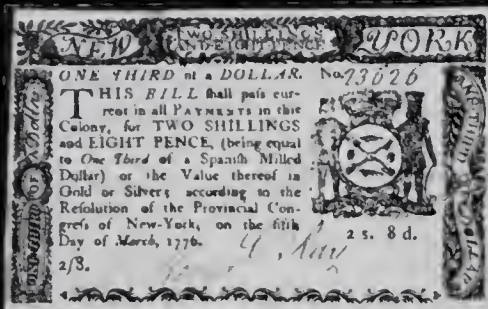 NEW TWO SHILLINGS YORK
AND EIGHT PENCE
ONE THIRD of a DOLLAR. No. 23026
THIS BILL ſhall paſs cur-
rent in all PAYMENTS in this
Colony, for TWO SHILLINGS
and EIGHT PENCE, (being equal
to One Third of a Spaniſh Milled
Dollar) or the Value thereof in
Gold or Silver; according to the
Reſolution of the Provincial Con-
greſs of New-York, on the fifth
Day of March, 1776.
2 s. 8 d.
2/8.
ONE THIRD OF A Dollar
ONE THIRD OF A DOLLAR